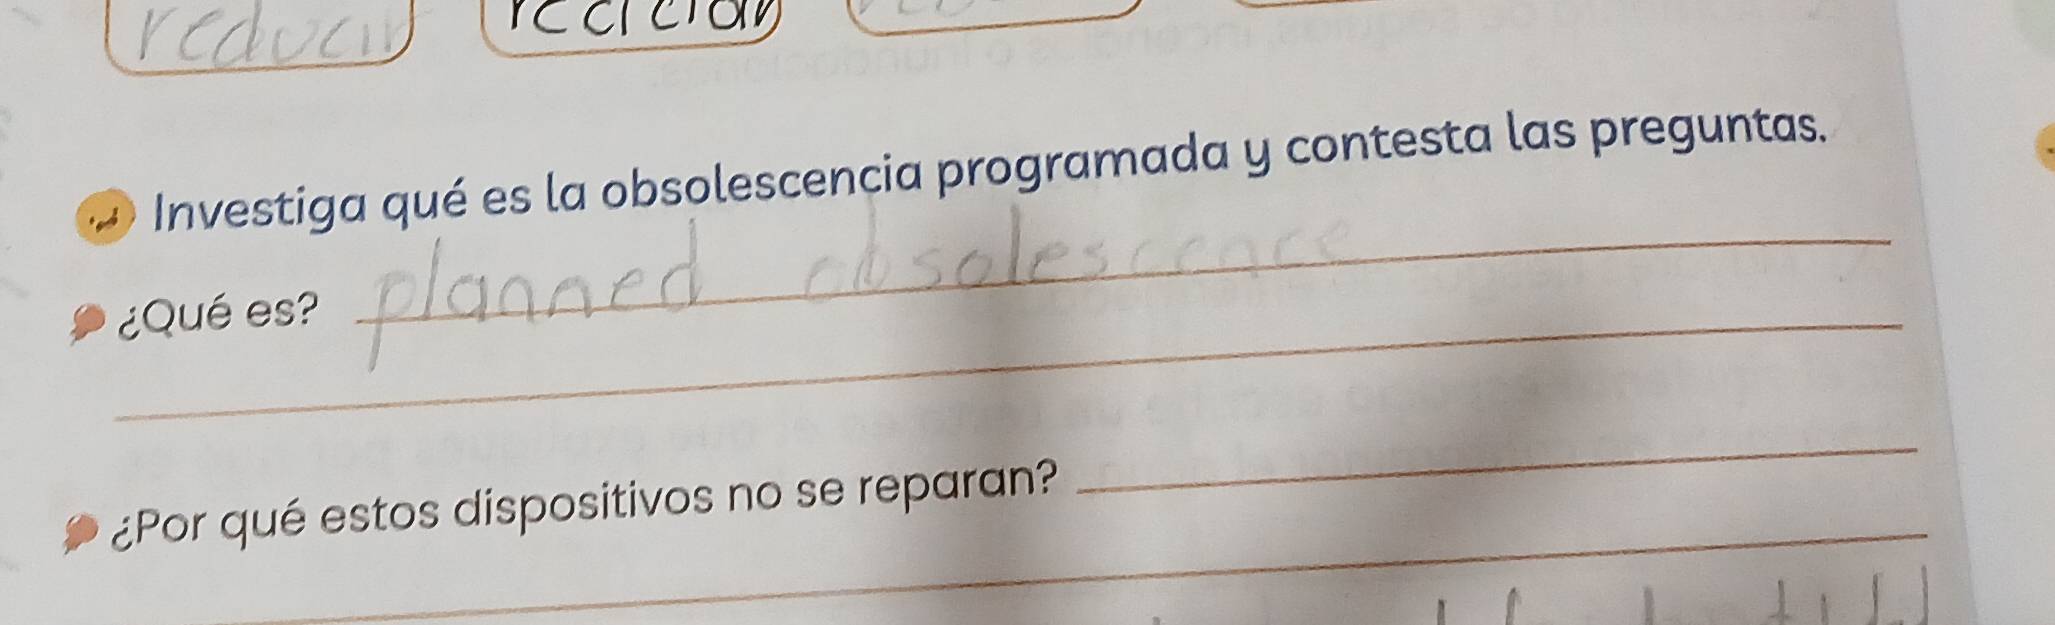 reducir reciclar
Investiga qué es la obsolescencia programada y contesta las preguntas.
¿Qué es? planned obsolescence
¿Por qué estos dispositivos no se reparan?